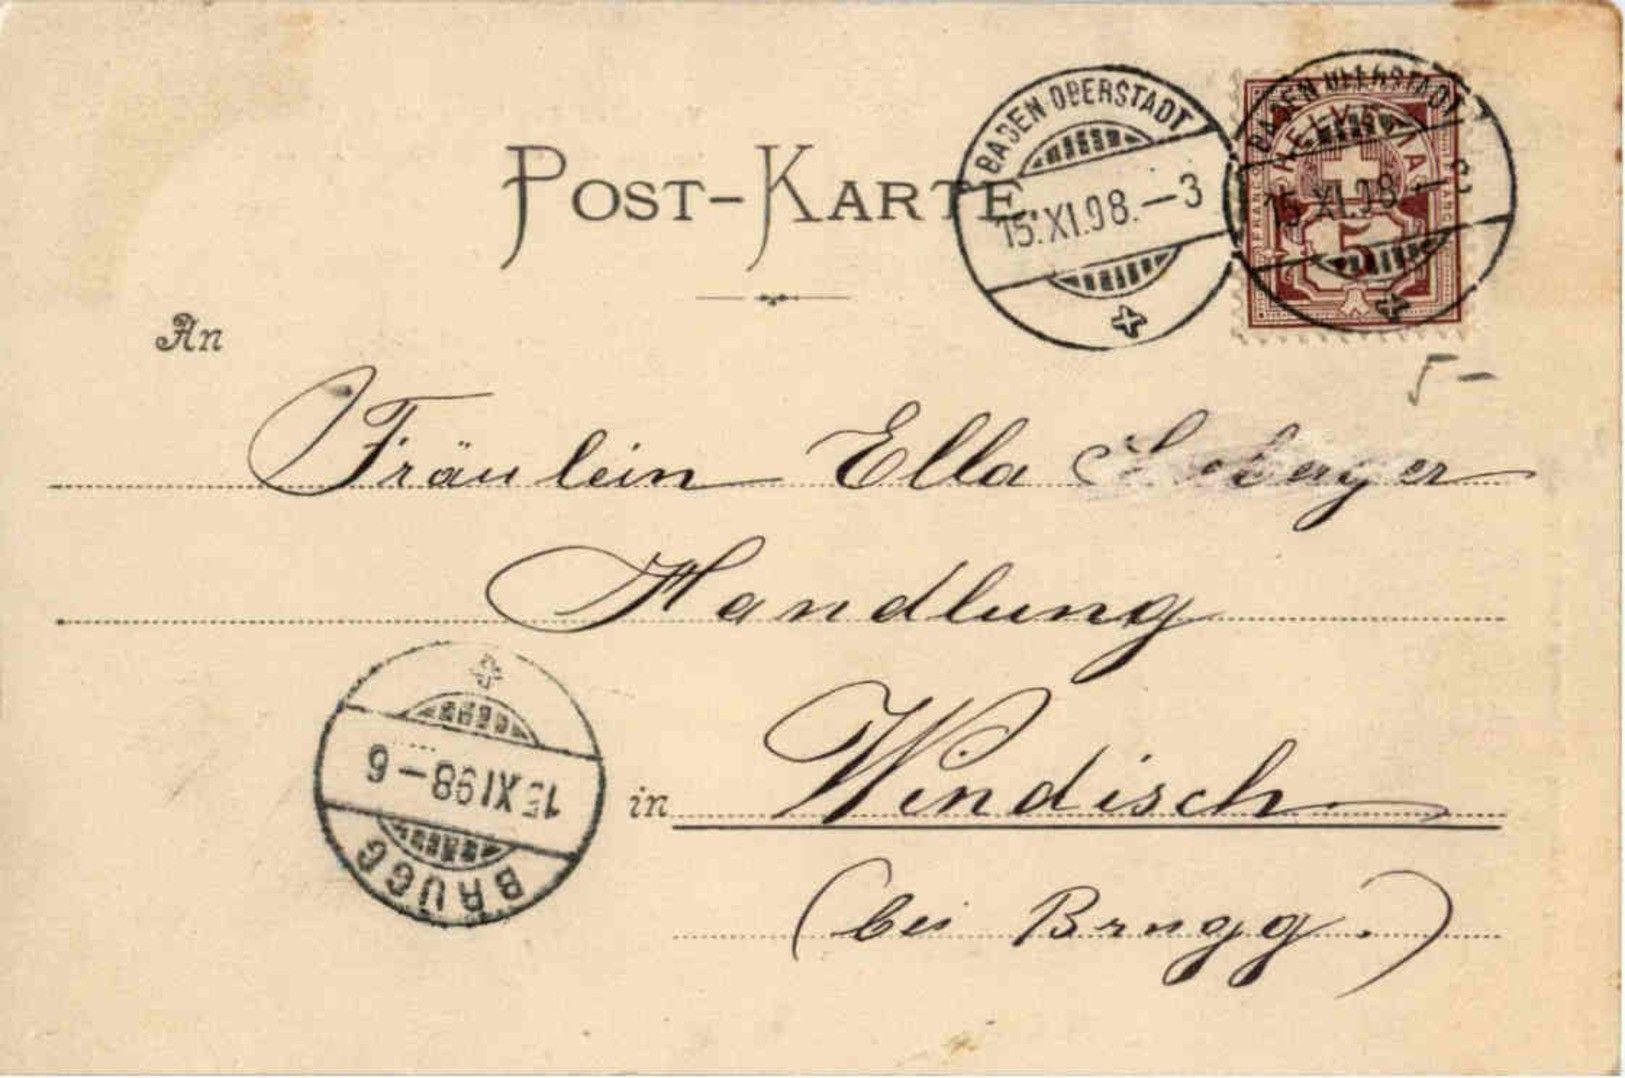 BADEN OBERSTADT
15.XI.98.–3
BADEN OBERSTADT
15.XI.98–3
HELVETIA
FRANCO
5
POST-KARTE
5–
An
Fräulein Ella
Handlung
in Windisch
(bei Brugg.)
15 XI 98–6
BRUGG